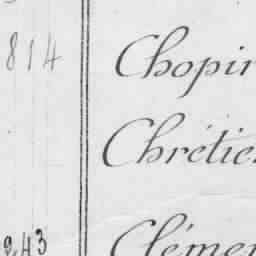 814 Chopin
Chrétie
243 Clémen